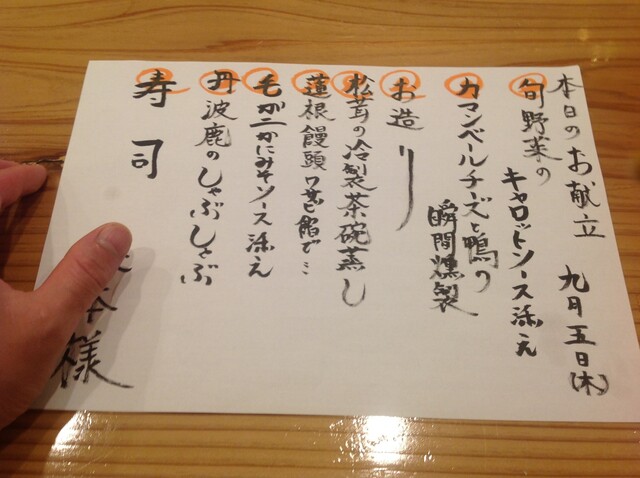 本日のお献立 九月五日(木)
旬野菜の
キャロットソース添え
カマンベールチーズと鴨の
瞬間燻製
お造り
松茸の冷製茶碗蒸し
蓮根饅頭ワサビ餡で…
毛がニかにみそソース添え
丹波鹿のしゃぶしゃぶ
寿司
本様